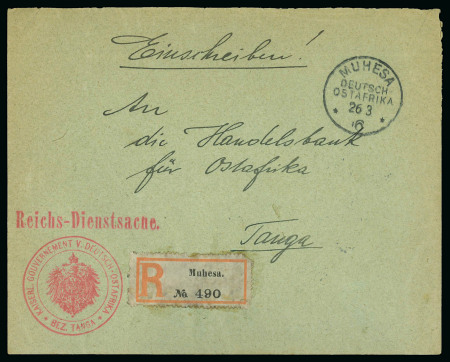 Einschreiben!
MUHESA
DEUTSCH-
OSTAFRIKA
26 3
An
die Handelsbank
für Ostafrika
Tanga
Reichs-Dienstsache.
KAISERL. GOUVERNEMENT V. DEUTSCH-OSTAFRIKA
BEZ. TANGA
R
Muhesa.
№ 490